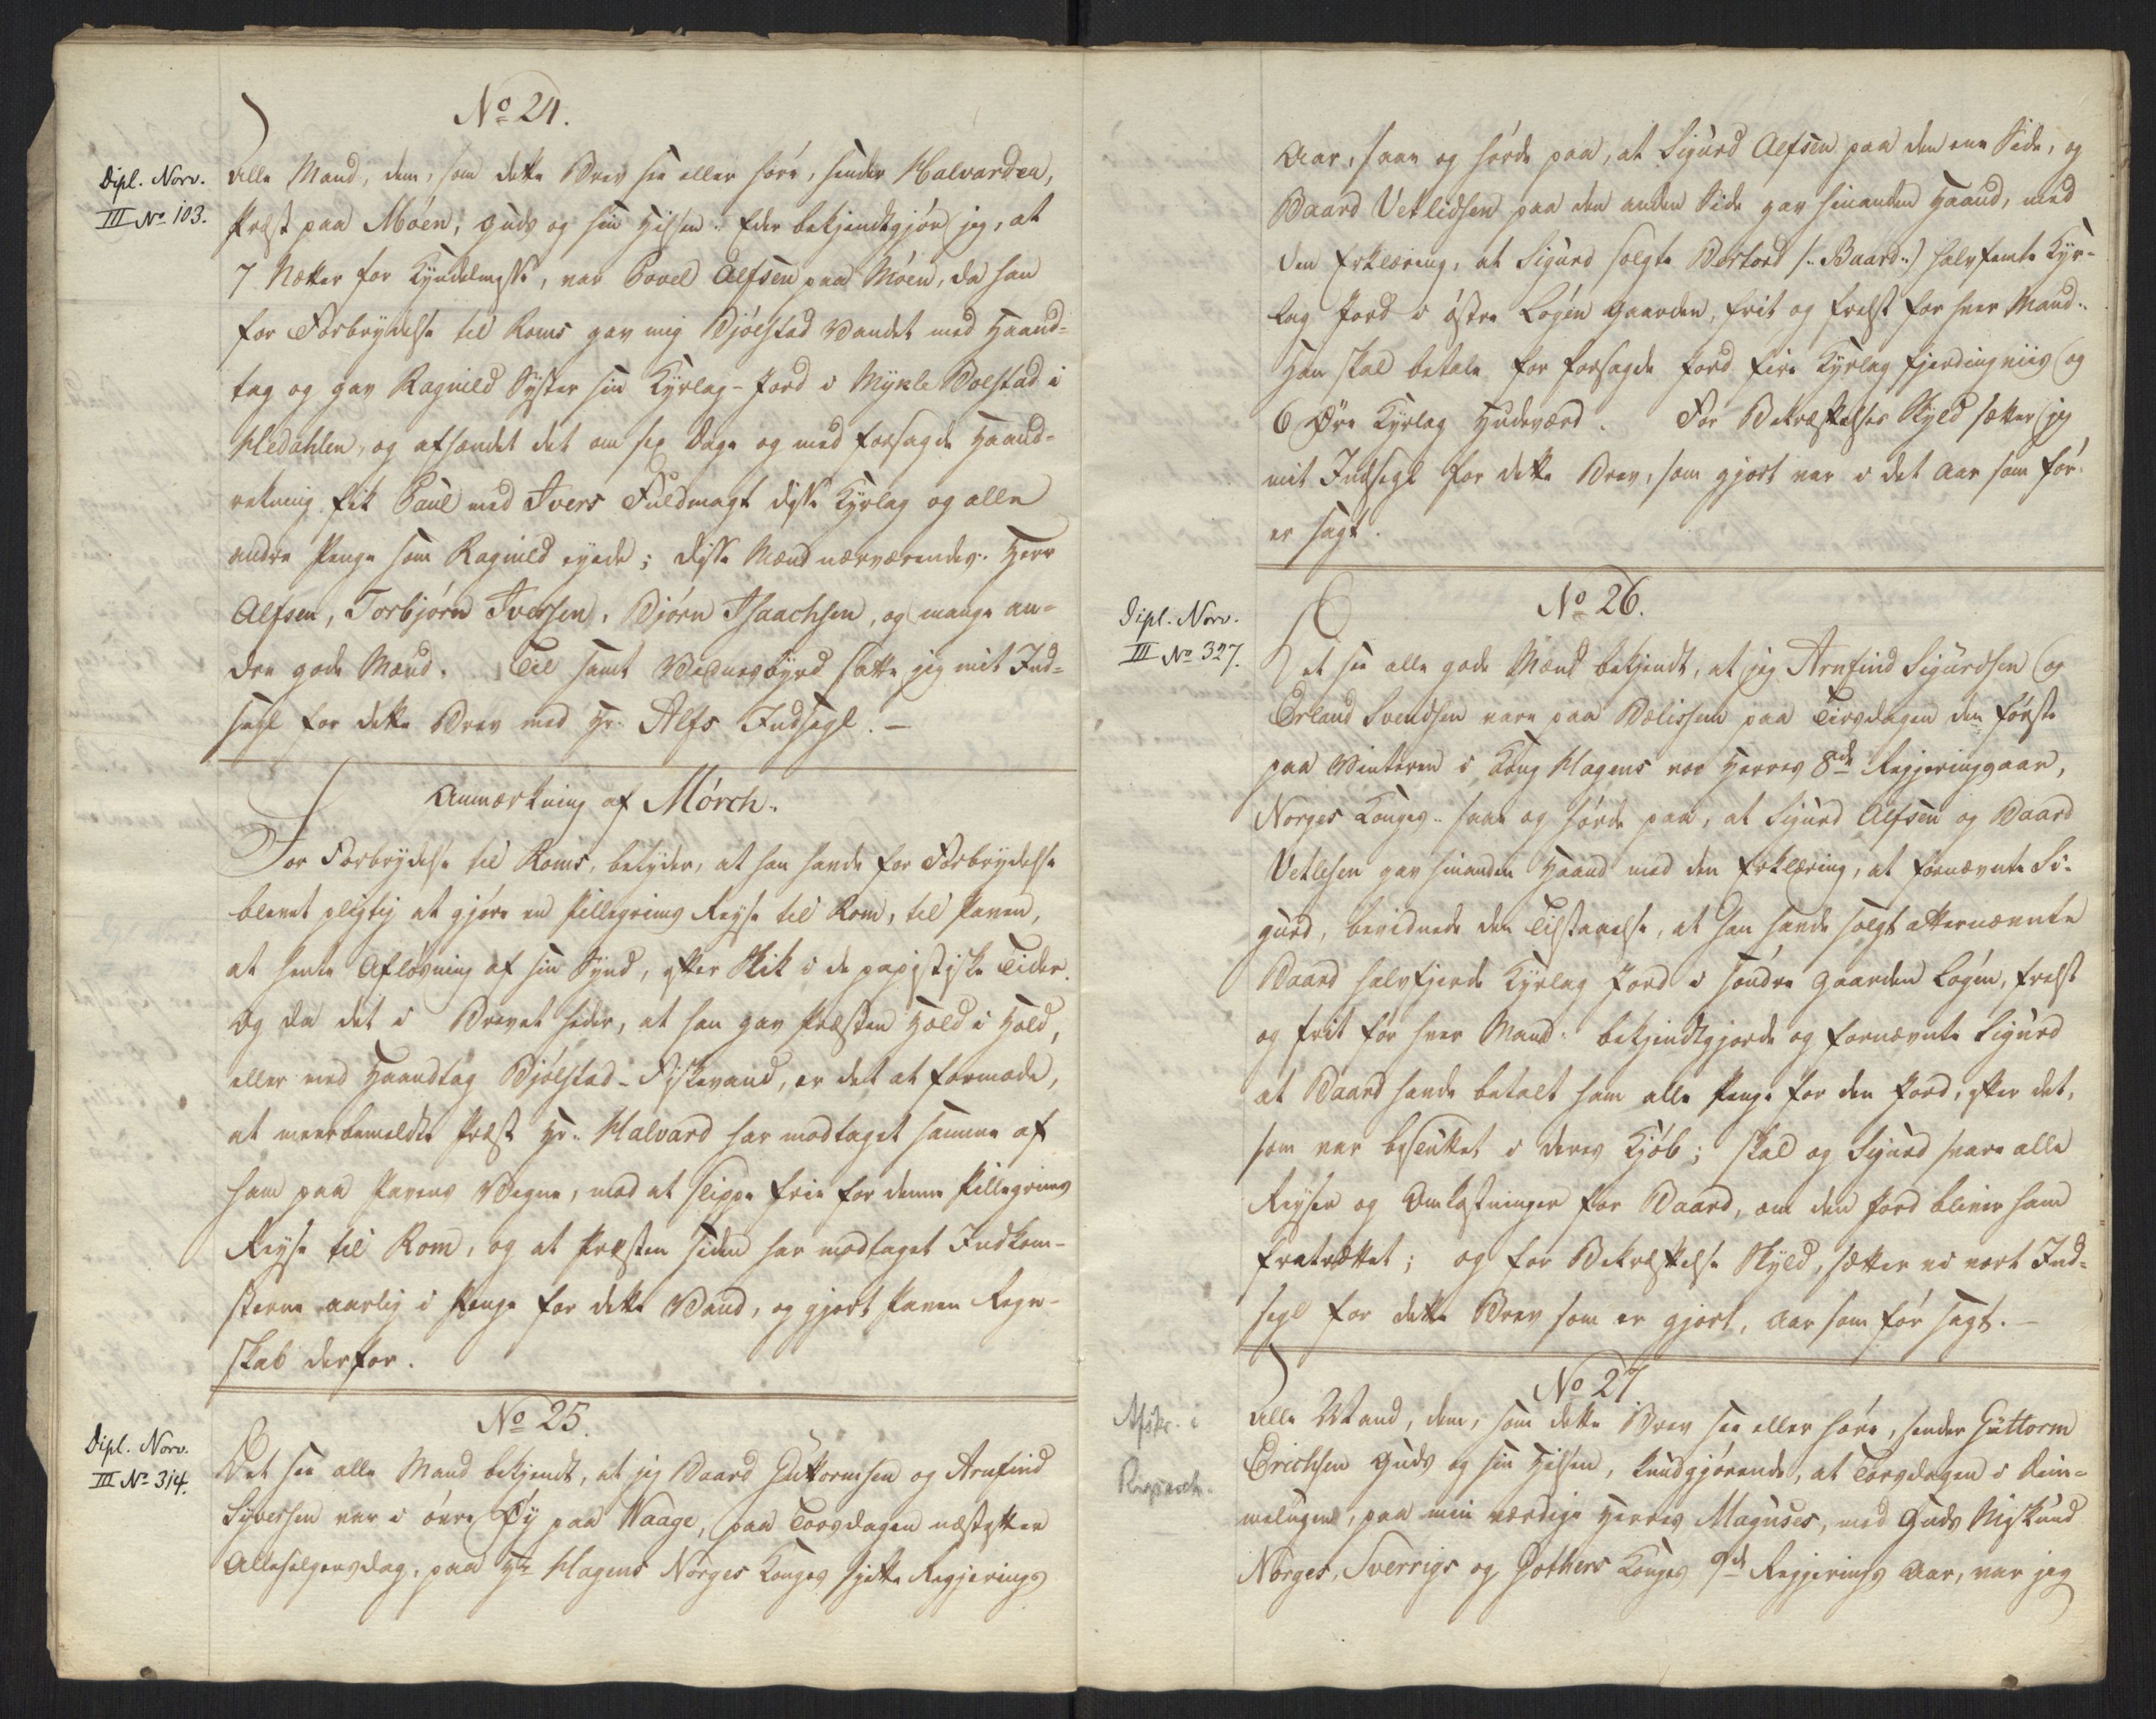 No 24.
Dipl. Norv.
III No 103.
Alle Mænd, dem, som dette Brev see eller høre, sender Halvarden,
Præst paa Móen, Guds og sin Hilsen. Eder bekjendtgjør jeg, at
7 Nætter for Kyndelmesse, var Povel Alfsen paa Móen, da han
for Forbrydelse til Roms gav mig Bjólstad Vandet med Haand-
tag og gav Ragnild Syster sin Kyrlag-Jord i Mykle Bolstad i
Hedahlen, og afhændet det om sex Dage og med forsagde Haand-
rekning fik Paul med Ivers Fuldmagt disse Kyrlag og alle
andre Penge som Ragnild eyede; disse Mænd nærværendes. Herr
Alfsen, Torbjórn Iversen, Bjórn Isaachsen, og mange an-
dre gode Mænd. Til sandt Vidnesbyrd sætter jeg mit Ind-
segl for dette Brev med Hr. Alfs Indsegl. —
Anmærkning af Mórch.
For Forbrydelse til Roms, betyder, at han havde for Forbrydelse
blevet pligtig at gjøre en Pillegrims Reyse til Rom, til Paven,
at hente Aflósning af sin Synd, efter Skik i de papistiske Tider.
Og da det i Brevet heder, at han gav Præsten Hold i Hold,
eller med Haandtag Bjólstad-Fiskevand, er det at formode,
at meerbemeldte Præst Hr. Halvard har modtaget samme af
ham paa Pavens Vegne, mod at slippe frie for denne Pillegrims
Reyse til Rom, og at Præsten siden har modtaget Indkom-
sterne aarlig i Penge for dette Vand, og gjort Paven Regn-
skab derfor.
No 25.
Dipl. Norv.
III No 314.
Det see alle Mænd bekjendt, at jeg Baard Guttormsen og Arnfind
Syversen var i óvre Bÿ paa Waage, paa Torsdagen næstefter
Allehelgensdag, paa Hr. Hagens Norges Konges siette Regjerings
Aar, saae og hørde paa, at Sigurd Alfsen paa den ene Side, og
Baard Vetlidsen paa den anden Side gav hinanden Haand, med
den Erklæring, at Sigurd solgte Bertord /: Baard :/ halvfemte Kyr-
lag Jord i óstre Lógen Gaarden, frit og frelst for hver Mand.
Han skal betale for forsagde Jord fire Kyrlag fjerdingviis og
6 Øre Kyrlag Hudeværd. For Bekræftelses Skyld sætter jeg
mit Indsegl for dette Brev, som gjort var i det Aar som fór
er sagt.
No 26.
Dipl. Norv.
III No 327.
Det see alle gode Mænd bekjendt, at jeg Arnfind Sigurdsen og
Erland Svendsen vare paa Velissem paa Tirsdagen den første
paa Vinteren i Kong Hagens vor Herres 8de Regjeringsaar,
Norges Konges. saae og hørde paa, at Sigurd Alfsen og Baard
Vetlesen gav hinanden Haand med den Erklæring, at fornævnte Si-
gurd, bevidnede den Tilstaaelse, at han havde solgt atternævnte
Baard halvfjerde Kyrlag Jord i søndre Gaarden Lógen, frelst
og frit for hver Mand. bekjendtgjorde og fornævnte Sigurd
at Baard havde betalt ham alle Penge for den Jord, efter det,
som var besluttet i deres Kjób; skal og Sigurd svare alle
Reyser og Omkostninger for Baard, om den Jord bliver ham
fratrættet; og for Bekræftelse Skyld, sætter vi vort Ind-
segl for dette Brev som er gjort, Aar som fór sagt. —
No 27
Afskr. i
Rigsarch.
Alle Mænd, dem, som dette Brev see eller høre, sender Guttorm
Erichsen Guds og sin Hilsen, kundgjørende, at Torsdagen i Dim-
melugen, paa min værdige Herres Maguses, med Guds Miskund
Norges, Sverrigs og Gothers Konges 9de Regjerings Aar, var jeg